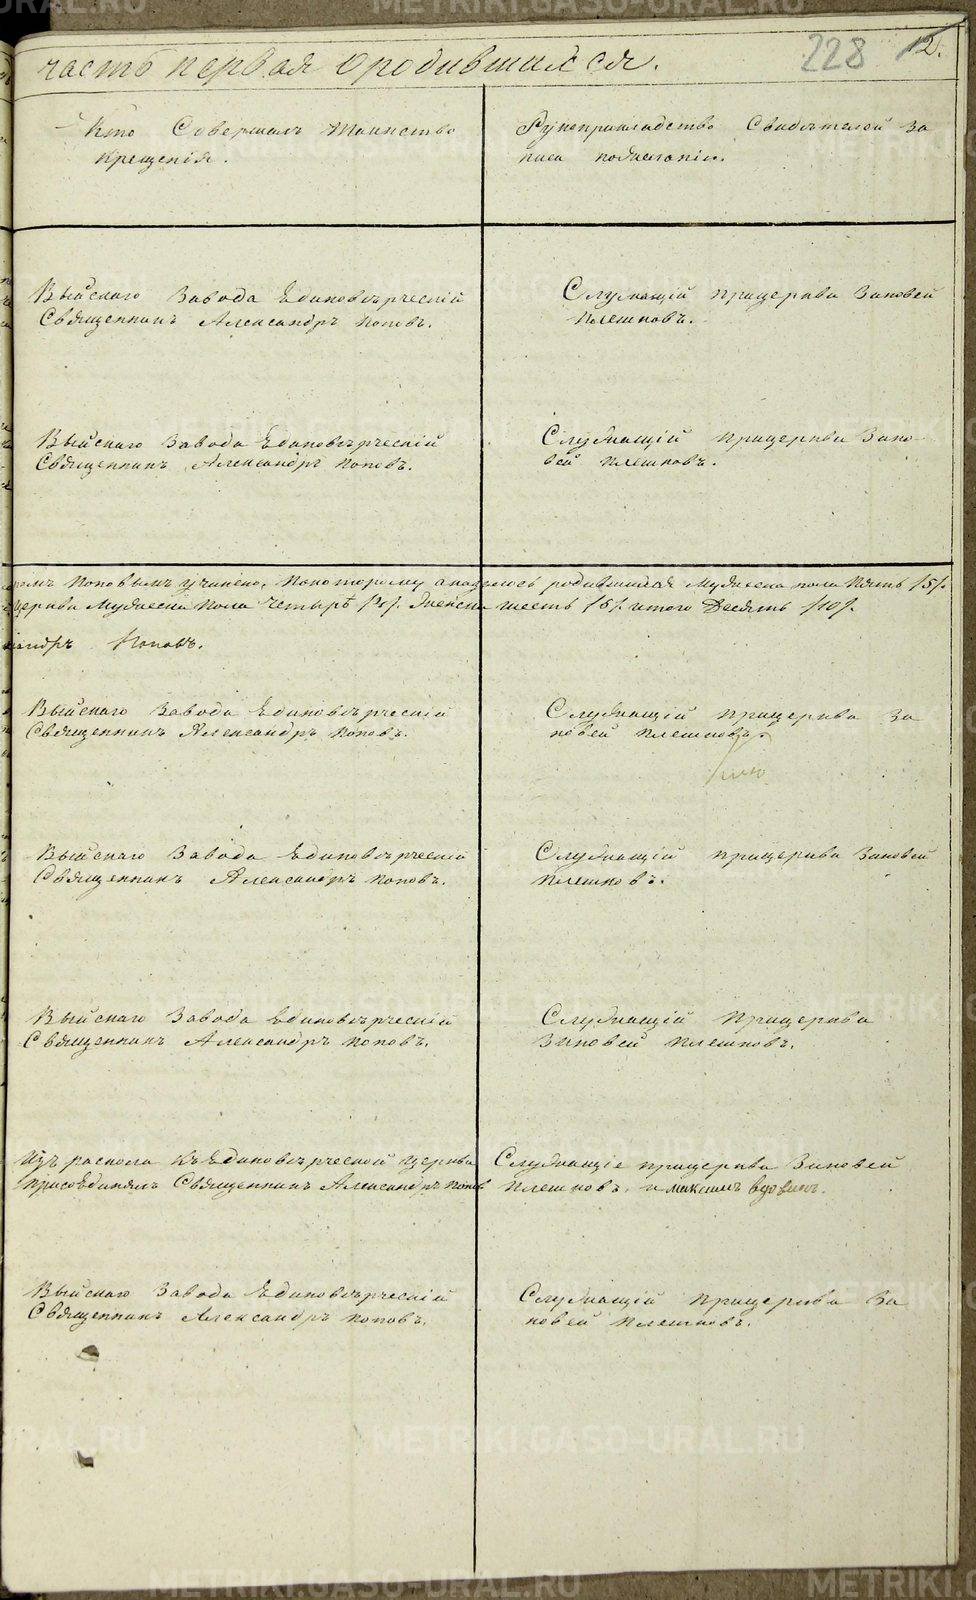 часть первая о родившихся.
228
12.
Кто Совершалъ таинство
крещенія.
Рукоприкладство Свидѣтелей за
писи по желанію.
Выйскаго Завода Единовѣрческій
Священникъ Александръ Поповъ.
Служащій при церкви Зиновей
Плешковъ.
Выйскаго Завода Единовѣрческій
Священникъ Александръ Поповъ.
Служащій при церкви Зино-
вей Плешковъ.
Поповымъ учинено, по которому оказалось родившихся мужеска пола пять /5/.
церкви мужеска пола четыре /4/. женска шесть /6/. итого Десять /10/.
Поповъ.
Выйскаго Завода Единовѣрческій
Священникъ Александръ Поповъ.
Служащій при церкви Зи
новей Плешковъ.
Выйскаго Завода Единовѣрческій
Священникъ Александръ Поповъ.
Служащій при церкви Зиновей
Плешковъ.
Выйскаго Завода Единовѣрческій
Священникъ Александръ Поповъ.
Служащій при церкви
Зиновей Плешковъ.
Изъ раскола къ Единовѣрческой церкви
присоединялъ Священникъ Александръ Поповъ
Служащіе при церкви Зиновей
Плешковъ. и максимъ вдовинъ.
Выйскаго Завода Единовѣрческій
Священникъ Александръ Поповъ.
Служащій при церкви Зи
новей Плешковъ.
METRIKI.GASO-URAL.RU